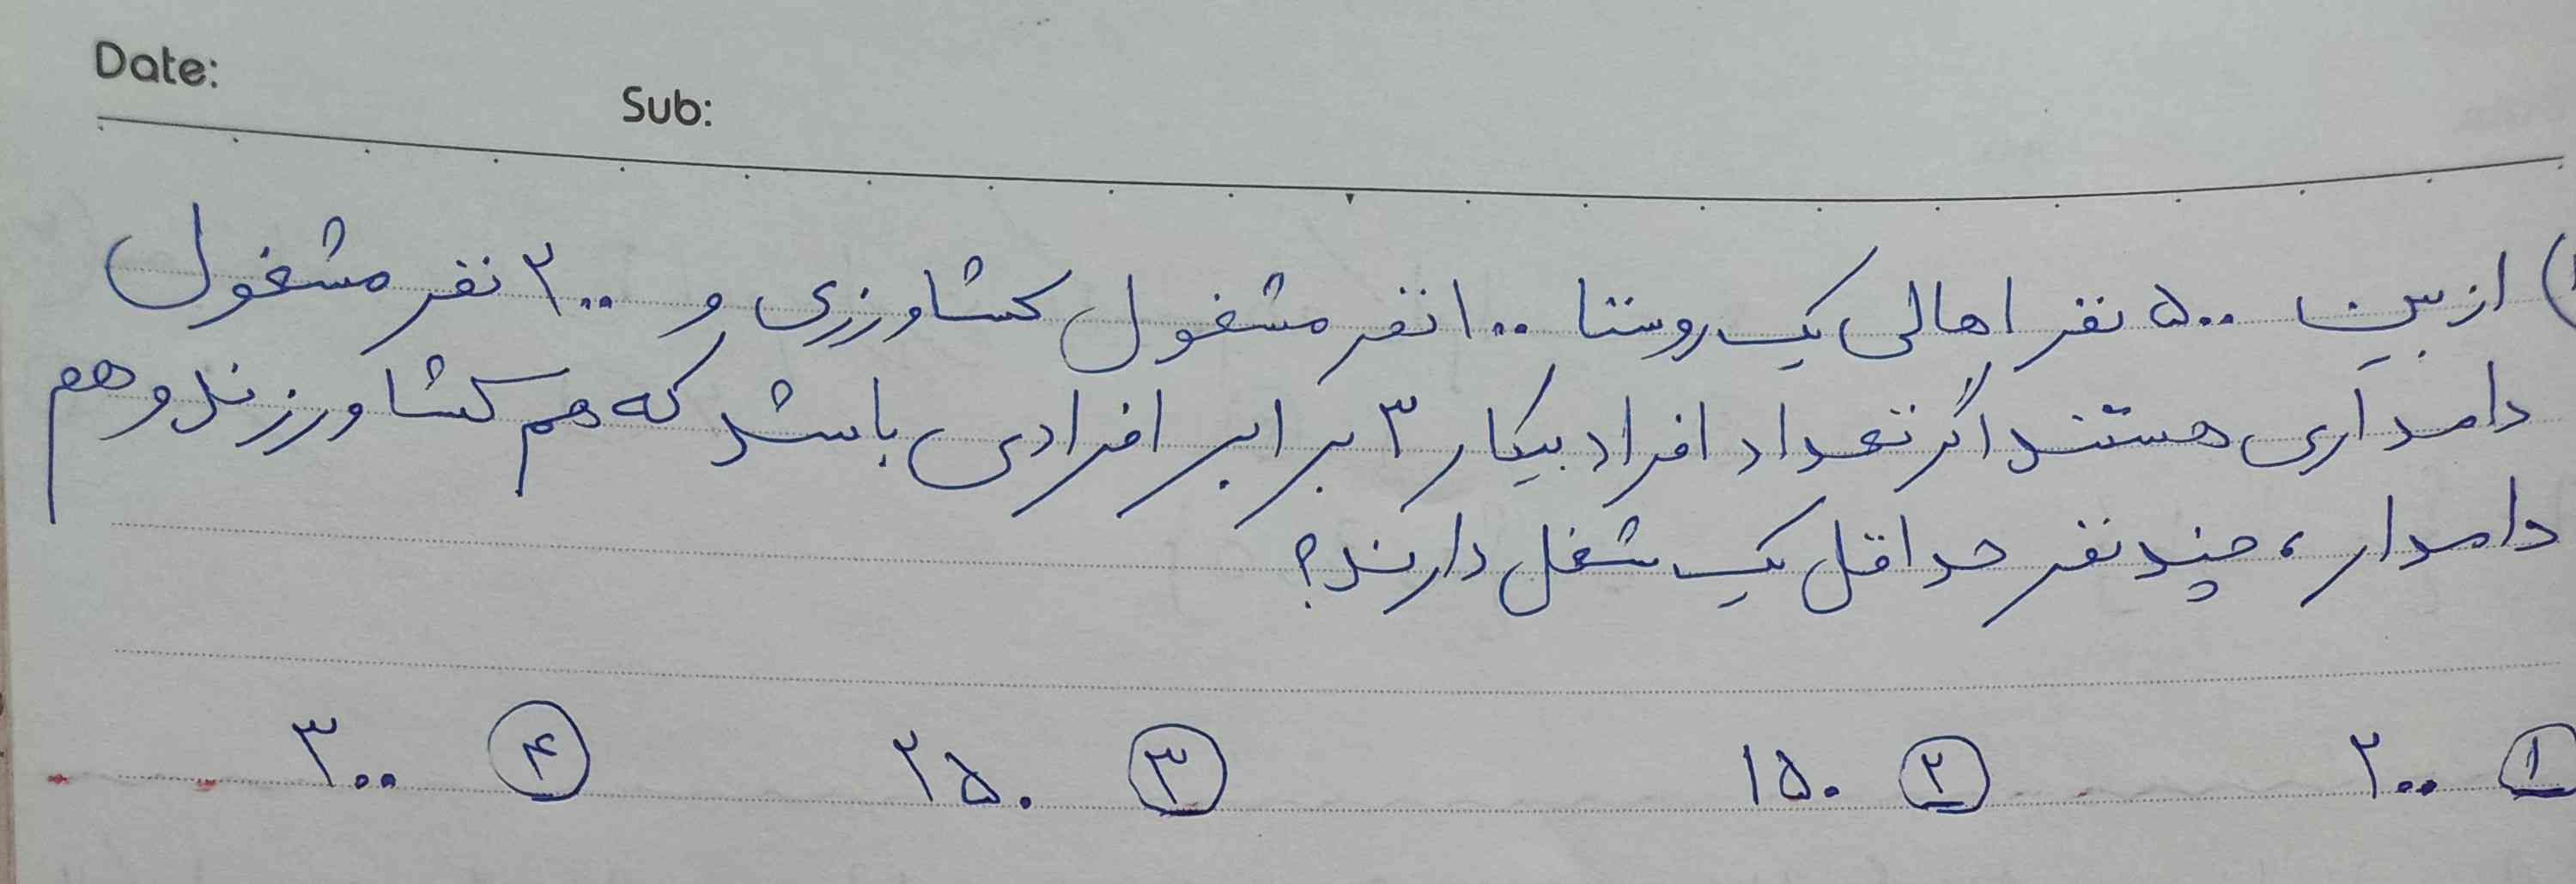 Date:
Sub:
۱) از بین ۵۰۰ نفر اهالی یک روستا ۱۰۰ نفر مشغول کشاورزی و ۲۰۰ نفر مشغول
دامداری هستند اگر تعداد افراد بیکار ۳ برابر افرادی باشد که هم کشاورزند و هم
دامدار، چند نفر حداقل یک شغل دارند؟
۱ ۲۰۰ ۲ ۱۵۰ ۳ ۲۵۰ ۴ ۳۰۰